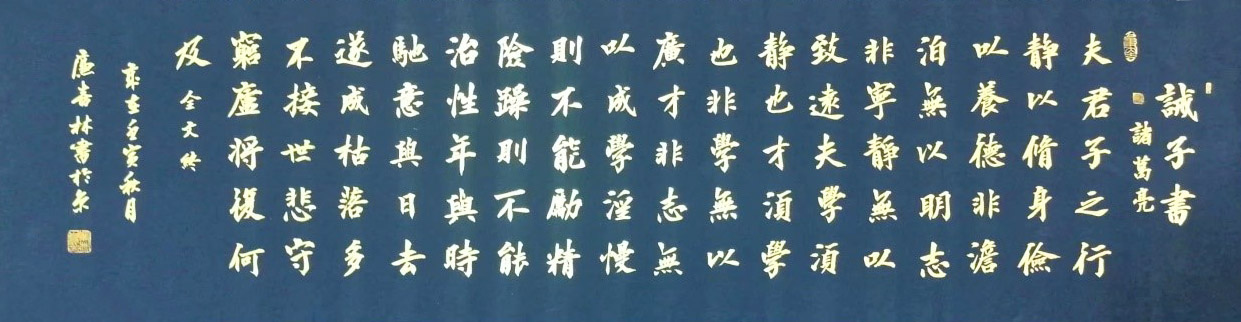 誡子書
諸葛亮
夫君子之行
静以脩身儉
以養德非澹
泊無以明志
非寧靜無以
致遠夫學須
静也才須學
也非學無以
廣才非志無
以成學淫慢
則不能勵精
險躁則不能
治性年與時
馳意與日去
遂成枯落多
不接世悲守
窮廬将復何
及
全文終
寅秋月
林書於京